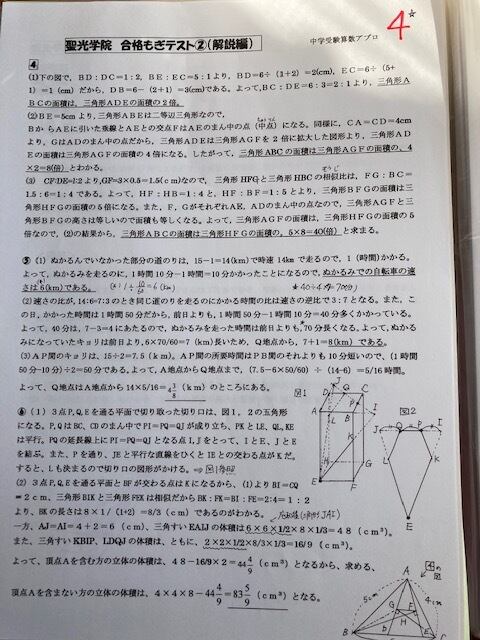 聖光学院 合格もぎテスト②(解説編)
中学受験算数アプロ
4☆
④
(1)下の図で、BD:DC=1:2、BE:EC=5:1より、BD=6÷(1+2)=2(cm)、EC=6÷(5+
1)=1(cm)だから、DB=6-(2+1)=3(cm)である。よって、BC:DE=6:3=2:1より、三角形A
BCの面積は、三角形ADEの面積の2倍。
(2)BE=5cmより、三角形ABEは二等辺三角形なので、
BからAEに引いた垂線とAEとの交点FはAEのまん中の点(中点)になる。同様に、CA=CD=4cm
より、GはADのまん中の点だから、三角形ADEは三角形AGFを2倍に拡大した図形より、三角形AD
Eの面積は三角形AGFの面積の4倍になる。したがって、三角形ABCの面積は三角形AGFの面積の、4
×2=8(倍)とわかる。
(3) CF:DE=1:2より、GF=3×0.5=1.5(cm)なので、三角形HFGと三角形HBCの相似比は、FG:BC=
1.5:6=1:4である。よって、HF:HB=1:4と、HF:BF=1:5とより、三角形BFGの面積は三
角形HFGの面積の5倍になる。また、F、GがそれぞれAE、ADのまん中の点なので、三角形AGFと三
角形BFGの高さは等しいので面積も等しくなる。よって、三角形AGFの面積は、三角形HFGの面積の5
倍なので、(2)の結果から、三角形ABCの面積は三角形HFGの面積の、5×8=40(倍)と求まる。
⑤(1)ぬかるんでいなかった部分の道のりは、15-1=14(km)で時速14kmで走るので、1(時間)かかる。
よって、ぬかるみを走るのに、1時間10分-1時間=10分かかったことになるので、ぬかるみでの自転車の速
さは6(km)である。
★40÷4/7=70(分)
(2)速さの比が、14:6=7:3のとき同じ道のりを走るのにかかる時間の比は速さの逆比で3:7となる。また、こ
の日、かかった時間は1時間50分だから、前日よりも、1時間50分-1時間10分=40分多くかかっている。
よって、40分は、7-3=4にあたるので、ぬかるみを走った時間は前日よりも、70分長くなる。よって、ぬかる
みになっていたキョリは前日より、6×70/60=7(km)長いため、Q地点から、7+1=8(km)である。
(3)AP間のキョリは、15÷2=7.5(km)。AP間の所要時間はPB間のそれよりも10分短いので、(1時間
50分-10分)÷2=50分である。よって、A地点からQ地点まで、(7.5-6×50/60)÷(14-6)=5/16時間。
よって、Q地点はA地点から14×5/16=4 3/8(km)のところにある。
⑥(1)3点P,Q,Eを通る平面で切り取った切り口は、図1、2の五角形
になる。P,QはBC、CDのまん中でPI=PQ=QJが成り立ち、PKとLE、QL、KE
は平行。PQの延長線上にPI=PQ=QJとなる点I,Jをとって、IとE、JとE
を結ぶ。また、Pを通り、JEと平行な直線をひくとIEとの交わる点がKだ。
すると、Lも決まるので切り口の図形がかける。⇒図1参照
(2)3点P,Q,Eを通る平面とBFが交わる点はKになるから、(1)よりBI=CQ
=2cm、三角形BIKと三角形FEKは相似だからBK:FK=BI:FE=2:4=1:2
より、BKの長さは8×1/(1+2)=8/3(cm)であるのがわかる。
一方、AJ=AI=4+2=6(cm)、三角すいEAIJの体積は6×6×1/2×8×1/3=48(cm³)。
また、三角すいKBIP、LDQJの体積は、ともに、2×2×1/2×8/3×1/3=16/9(cm³)。
よって、頂点Aを含む方の立体の体積は、48-16/9×2=44 4/9(cm³)となるから、求める、
頂点Aを含まない方の立体の体積は、4×4×8-44 4/9=83 5/9(cm³)となる。
図1
J
D
Q
C
A
B
P
I
L
K
H
G
E
F
図2
J
Q
P
I
L
K
E
④の図
A
5cm
4cm
G
F
H
B
D
E
C